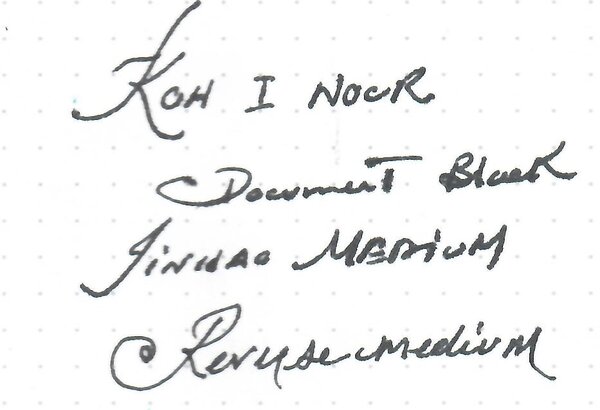 KOH I NOOR
Document Black
JINHAO MEDIUM
Reverse medium